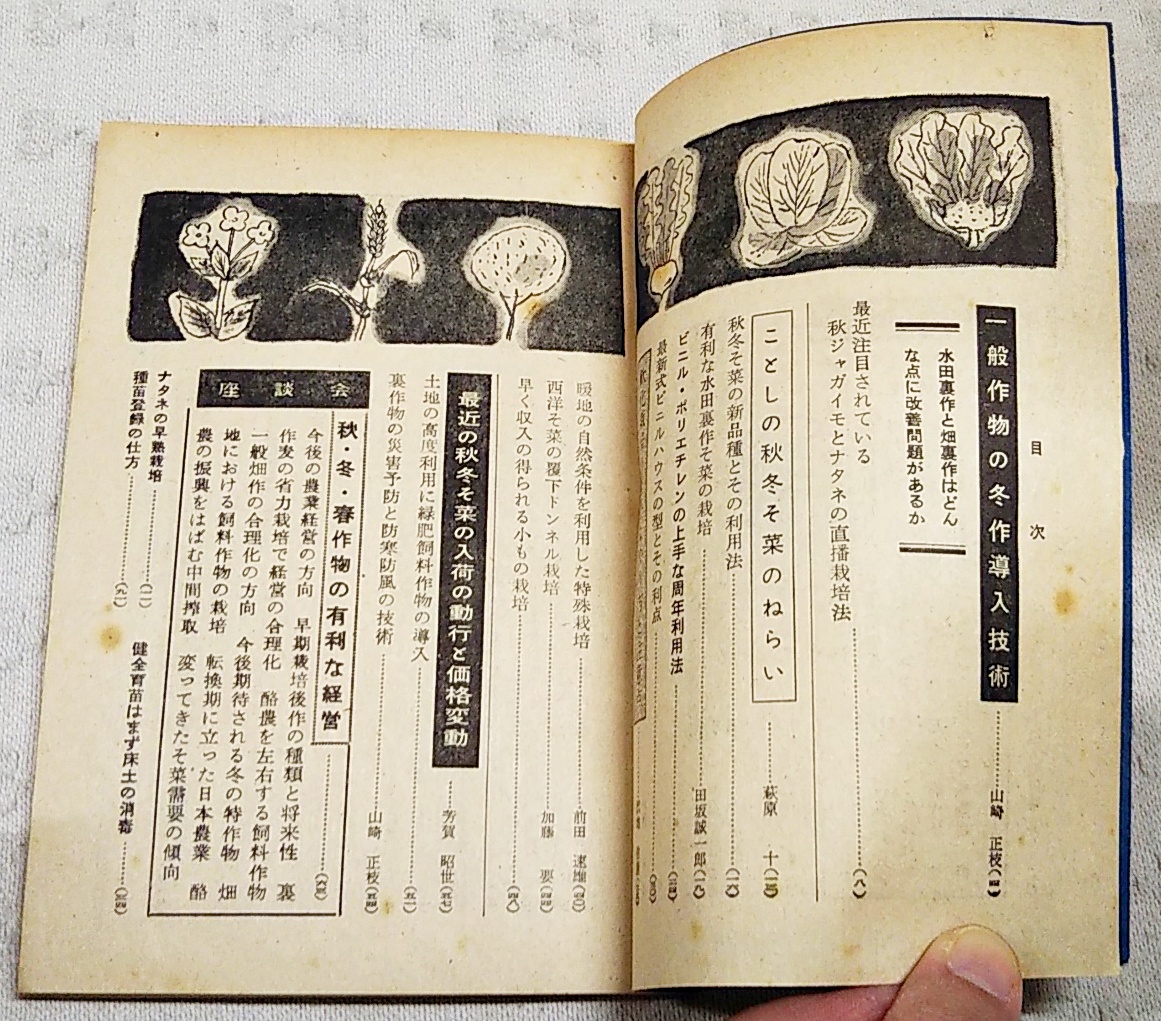 目次
一般作物の冬作導入技術……山崎 正枝(四)
水田裏作と畑裏作はどん
な点に改善問題があるか
最近注目されている
秋ジャガイモとナタネの直播栽培法……(八)
ことしの秋冬そ菜のねらい……萩原 十(一三)
秋冬そ菜の新品種とその利用法……(一六)
有利な水田裏作そ菜の栽培……田坂誠一郎(一九)
ビニル・ポリエチレンの上手な周年利用法……(二四)
最新式ビニルハウスの型とその利点……(三〇)
暖地の自然条件を利用した特殊栽培……前田 速雄(四〇)
西洋そ菜の覆下トンネル栽培……加藤 要(四四)
早く収入の得られる小もの栽培……(四八)
最近の秋冬そ菜の入荷の動行と価格変動……芳賀 昭世(五七)
土地の高度利用に緑肥飼料作物の導入……(五一)
裏作物の災害予防と防寒防風の技術……山崎 正枝(五四)
座談会
秋・冬・春作物の有利な経営……(六三)
今後の農業経営の方向 早期栽培後作の種類と将来性 裏
作麦の省力栽培で経営の合理化 酪農を左右する飼料作物
一般畑作の合理化の方向 今後期待される冬の特作物 畑
地における飼料作物の栽培 転換期に立った日本農業 酪
農の振興をはばむ中間搾取 変ってきたそ菜需要の傾向
ナタネの早熟栽培……(一二)
種苗登録の仕方……(九一)
健全育苗はまず床土の消毒……(三四)